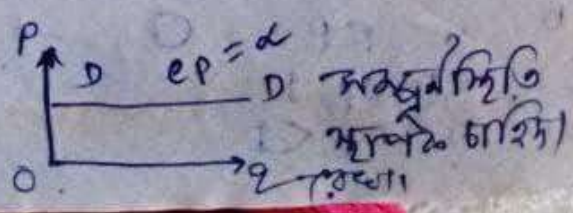 P
D eP = α D সম্পূর্ণ স্থিতি
স্থাপক চাহিদা
O q রেখা।